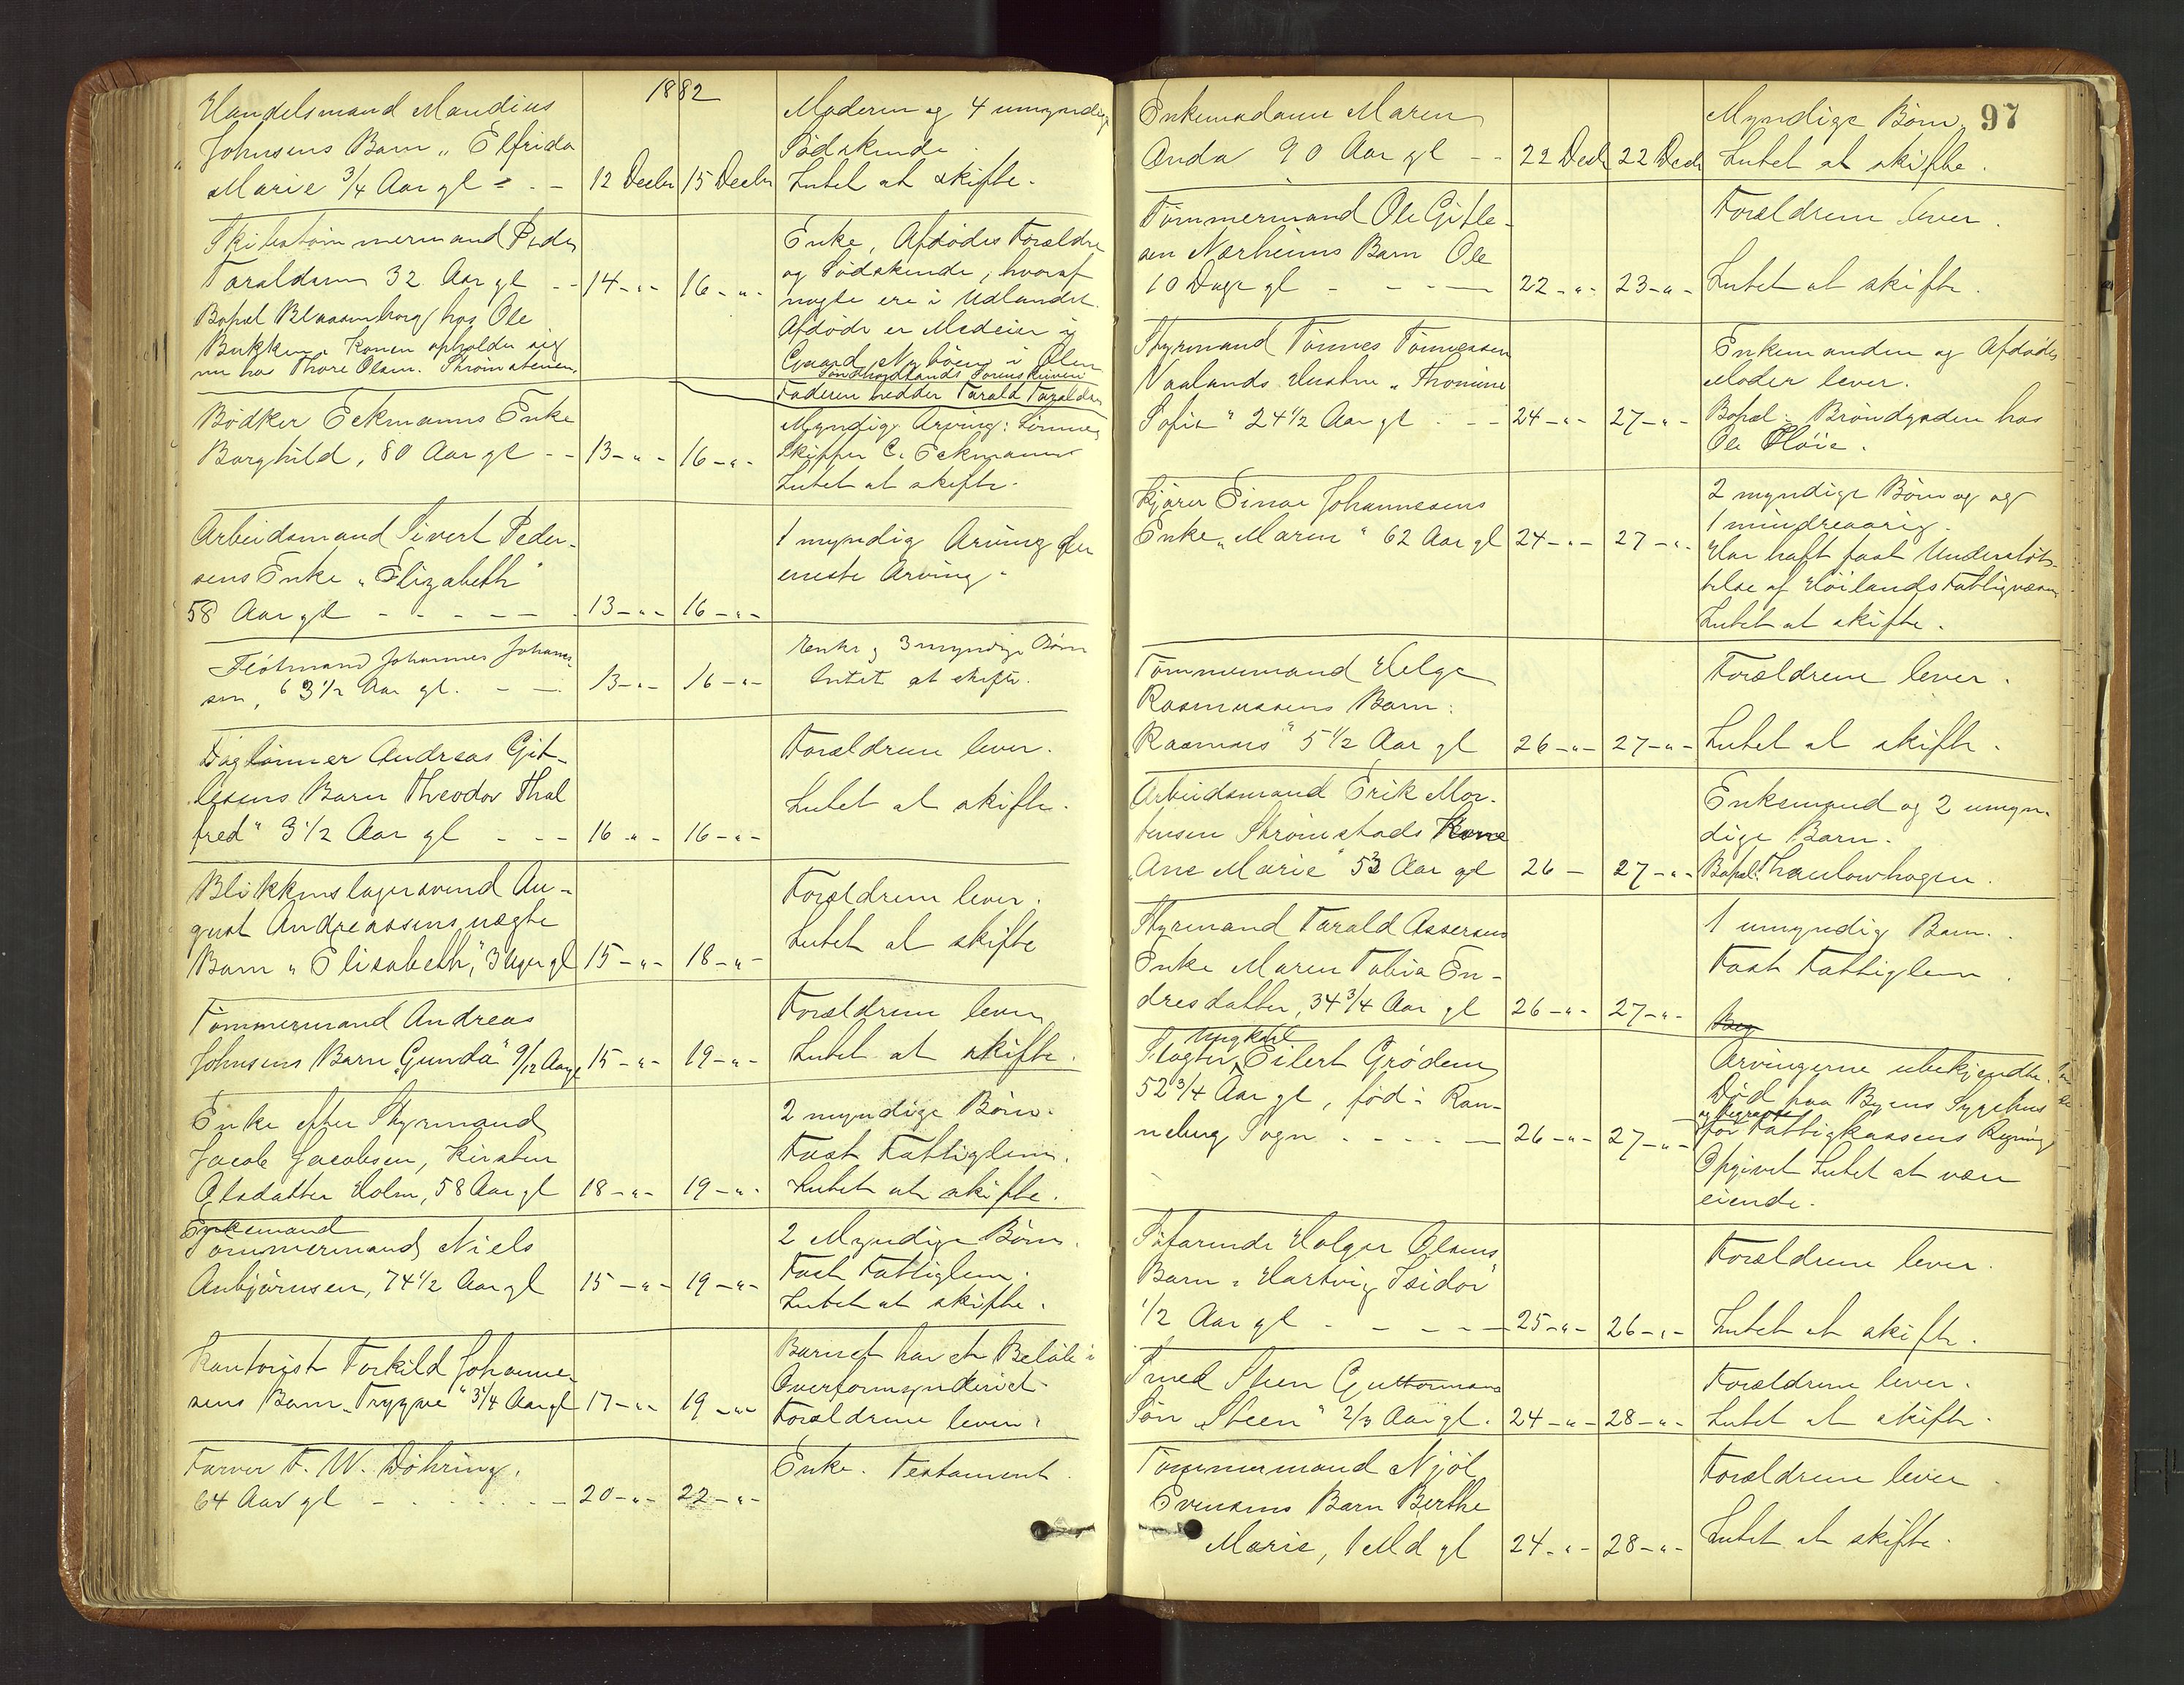 1882
Handelsmand Maudius
Johnsens Barn „Elfrida
Marie 3/4 Aar gl - - - 12 Decbr 15 Decbr
Moderen og 4 umyndige
Södskende.
Intet at skifte.
Skibstömmermand Peder
Taraldsen 32 Aar gl - - 14 - „ - 16 - „ -
Bopæl Blaasenborg hos Ole
Bukken. Konen opholder sig
nu hos Thore Olsen. Strömsteinen
Enke, Afdödes Forældre
og Södskende, hvoraf
nogle ere i Udlandet.
Afdöde er Medeier i
Gaard Nyböen i Ölen
Söndhordlands Sorenskriveri
Faderen hedder Tarald Taraldsen
Bödker Eckmanns Enke
Borghild, 80 Aar gl - - 13 - „ - 16 - „ -
Myndig Arving: Sönnen
Skipper C. Eckmann
Intet at skifte.
Arbeidsmand Sivert Peder-
sens Enke „Elizabeth"
58 Aar gl - - - - - 13 - „ - 16 - „ -
1 myndig Arving den
eneste Arving.
Flötmand Johannes Johannes
sen, 63 1/2 Aar gl. - - 13 - „ - 16 - „ -
Enke og 3 myndige Börn
Intet at skifte.
Daglönner Andreas Git-
lesens Barn Theodor Thal
fred" 3 1/2 Aar gl - - - 16 - „ - 16 - „ -
Forældrene lever.
Intet at skifte.
Blikkenslagersvend Au-
gust Andreassens uægte
Barn „Elisabeth", 3 Uger gl 15 - „ - 18 - „ -
Forældrene lever.
Intet at skifte
Tömmermand Andreas
Johnsens Barn „Gunda" 9/12 Aar gl 15 - „ - 19 - „ -
Forældrene lever
Intet at skifte.
Enke efter Styrmand
Jacob Jacobsen, Kirsten
Olsdatter Holm, 58 Aar gl 18 - „ - 19 - „ -
2 myndige Börn.
Fast Fattiglem.
Intet at skifte.
Enkemand
Tömmermand Niels
Anbjörnsen, 74 1/2 Aar gl 15 - „ - 19 - „ -
2 Myndige Börn.
Fast Fattiglem.
Intet at skifte.
Kontorist Torkild Johanne-
sens Barn „Trygve" 3 1/4 Aar gl 17 - „ - 19 - „ -
Barnet har et Belöb i
Overformynderiet.
Forældrene lever.
Farver F. W. Döhring.
64 Aar gl - - - - - - 20 - „ - 22 - „ -
Enke. Testament.
97
Enkemadame Maren
Anda 90 Aar gl - - 22 Decb 22 Decb
Myndige Börn.
Intet at skifte.
Tömmermand Ole Gitle-
sen Nærheims Barn Ole
10 Dage gl - - - - 22 - „ - 23 - „ -
Forældrene lever.
Intet at skifte.
Styrmand Tönnes Tönnessen
Vaalands Hustru „Thomine
Sofie" 24 1/2 Aar gl - - - 24 - „ - 27 - „ -
Enkemanden og Afdödes
Moder lever.
Bopæl: Bröndgaden hos
Ole Höie.
Kjörer Einar Johannesens
Enke „Maren" 62 Aar gl 24 - „ - 27 - „ -
2 myndige Börn og og
1 mindreaarig.
Har haft fast Understöt-
telse af Höilands Fattigvæsen
Intet at skifte.
Tömmermand Helge
Rasmussens Barn:
„Rasmus" 5 1/2 Aar gl 26 - „ - 27 - „ -
Forældrene lever.
Intet at skifte.
Arbeidsmand Erik Mor-
tensen Strömstads Kone
„Ane Marie" 53 Aar gl 26 - 27 - „ -
Enkemand og 2 umyn-
dige Barn.
Bopæl: Thaulowhagen.
Styrmand Tarald Assersens
Enke Maren Tobia En-
dresdatter, 34 3/4 Aar gl 26 - „ - 27 - „ -
1 umyndig Barn.
Fast Fattiglem.
Ungkarl
Slagter Eilert Gröden
52 3/4 Aar gl, föd i Ran-
neberg Sogn - - - - - 26 - „ - 27 - „ -
Arvingerne ubekjendte.
Död paa Byens Sygehus
og begravet
for Fattigkassens Regning
Opgivet Intet at være
eiende.
Söfarende Holger Olsens
Barn „Hartvig Isidor"
1/2 Aar gl - - - - - 25 - „ - 26 - „ -
Forældrene lever.
Intet at skifte.
Smed Steen Guttormsens
Sön „Steen" 2/3 Aar gl. 24 - „ - 28 - „ -
Forældrene lever.
Intet at skifte.
Tömmermand Njöl
Evensens Barn Berthe
Marie, 1 Md gl 24 - „ - 28 - „ -
Forældrene lever.
Intet at skifte.